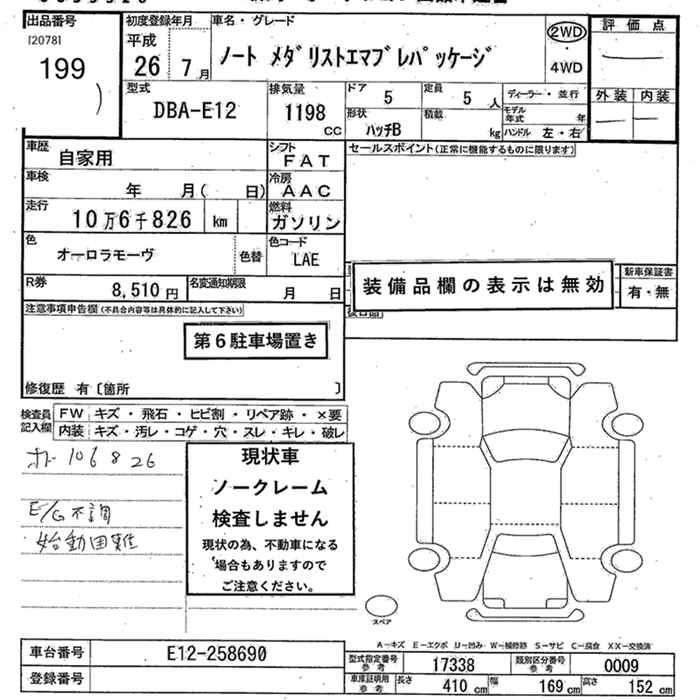 出品番号
[2078]
199
)
初度登録年月
平成
26年7月
車名・グレード
ノート メダリストエマブレパッケージ
2WD
4WD
評価点
外装 内装
型式
DBA-E12
排気量
1198
cc
ドア
5
定員
5 人
形状
ハッチB
積載
kg
ディーラー・並行
モデル年式 年
ハンドル 左・右
車歴
自家用
シフト
FAT
車検
年 月( 日)
冷房
AAC
走行
10万6千826 km
燃料
ガソリン
色
オーロラモーヴ
色替
色コード
LAE
R券
8,510円
名変通知期限
月 日
セールスポイント(正常に機能するものに限ります)
装備品欄の表示は無効
新車保証書
有・無
注意事項申告欄(不具合内容等は具体的に記入して下さい)
第6駐車場置き
修復歴 有〔箇所 〕
検査員記入欄
FW キズ・飛石・ヒビ割・リペア跡・×要
内装 キズ・汚レ・コゲ・穴・スレ・キレ・破レ
106826
E/G不調
始動困難
現状車
ノークレーム
検査しません
現状の為、不動車になる
場合もありますので
ご注意ください。
スペア
A-キズ E-エクボ U-凹み W-補修跡 S-サビ C-腐食 XX-交換済
車台番号
E12-258690
登録番号
型式指定番号 参考
17338
類別区分番号 参考
0009
車庫証明用 参考
長さ 410 cm 幅 169 cm 高さ 152 cm